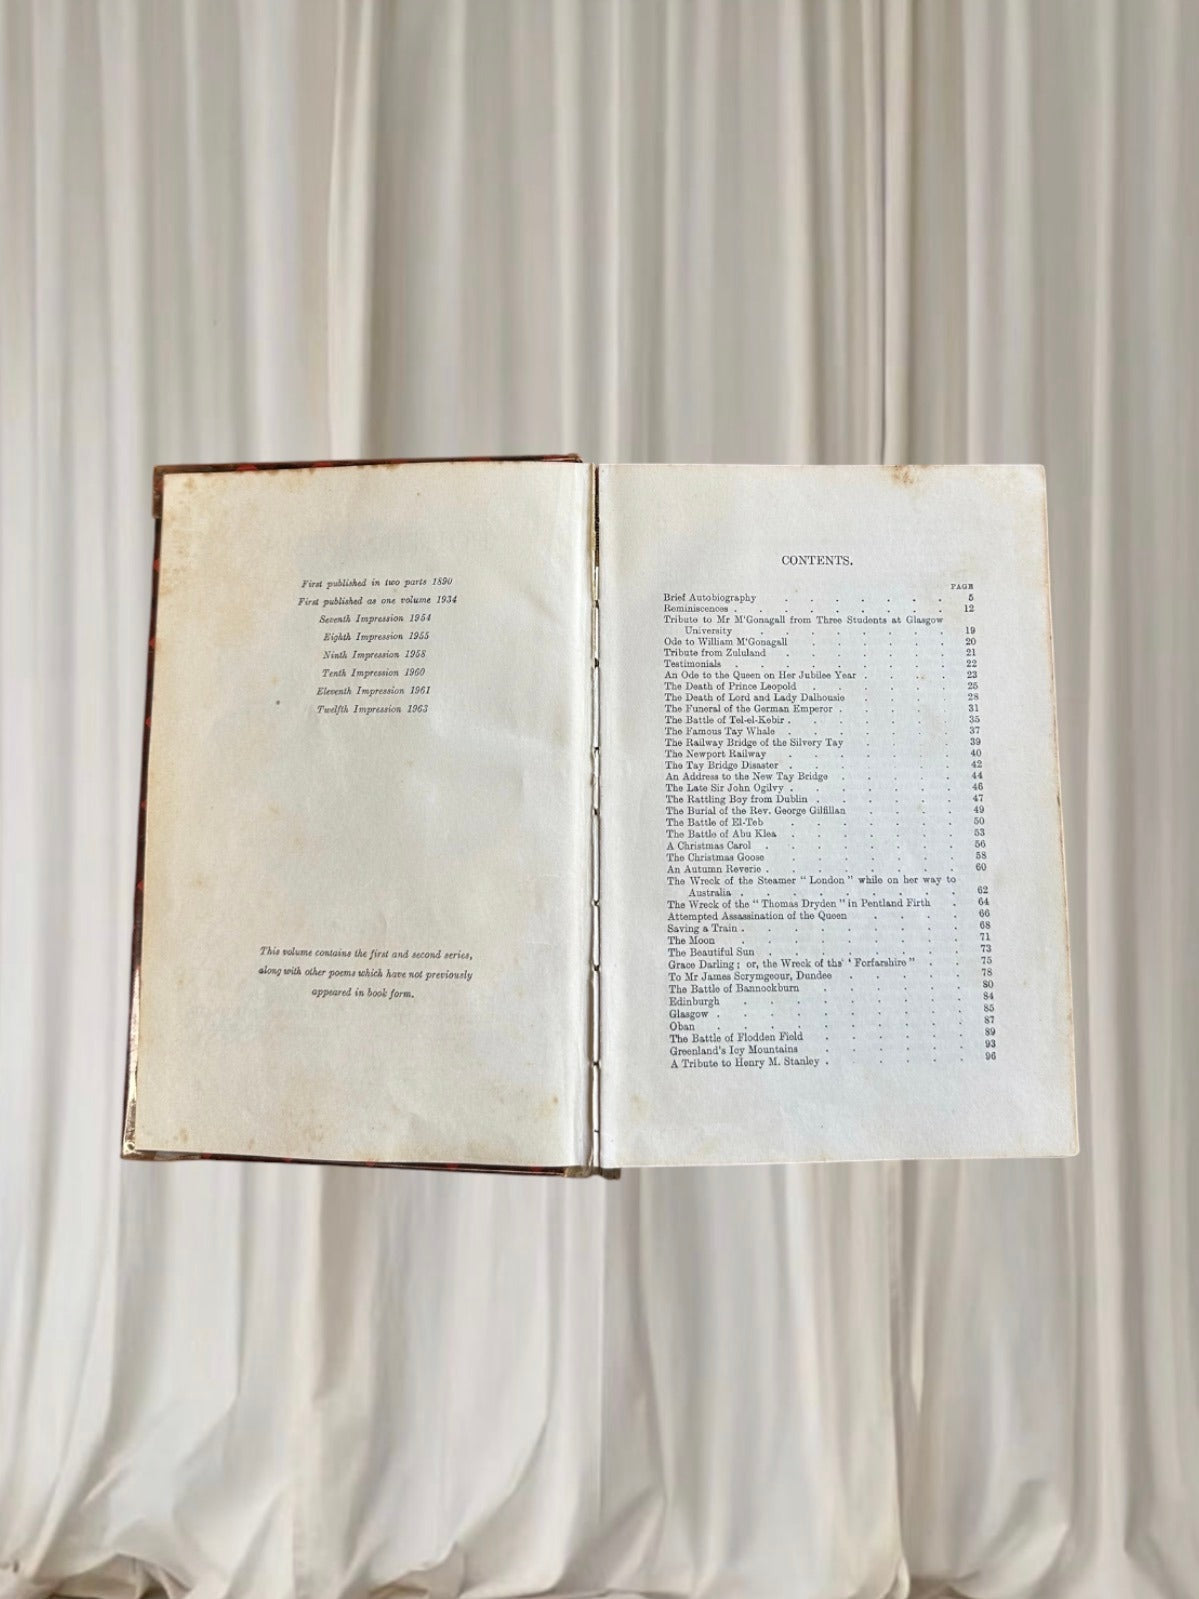 First published in two parts 1890
First published as one volume 1934
Seventh Impression 1954
Eighth Impression 1955
Ninth Impression 1958
Tenth Impression 1960
Eleventh Impression 1961
Twelfth Impression 1963
This volume contains the first and second series,
along with other poems which have not previously
appeared in book form.
CONTENTS.
PAGE
Brief Autobiography . . . . . . . 5
Reminiscences . . . . . . . . . 12
Tribute to Mr M'Gonagall from Three Students at Glasgow
University . . . . . . . . 19
Ode to William M'Gonagall . . . . . . 20
Tribute from Zululand . . . . . . . 21
Testimonials . . . . . . . . . 22
An Ode to the Queen on Her Jubilee Year . . . . 23
The Death of Prince Leopold . . . . . . 25
The Death of Lord and Lady Dalhousie . . . . 28
The Funeral of the German Emperor . . . . . 31
The Battle of Tel-el-Kebir . . . . . . . 35
The Famous Tay Whale . . . . . . . 37
The Railway Bridge of the Silvery Tay . . . . 39
The Newport Railway . . . . . . . 40
The Tay Bridge Disaster . . . . . . . 42
An Address to the New Tay Bridge . . . . . 44
The Late Sir John Ogilvy . . . . . . . 46
The Rattling Boy from Dublin . . . . . . 47
The Burial of the Rev. George Gilfillan . . . . 49
The Battle of El-Teb . . . . . . . 50
The Battle of Abu Klea . . . . . . . 53
A Christmas Carol . . . . . . . . 56
The Christmas Goose . . . . . . . 58
An Autumn Reverie . . . . . . . . 60
The Wreck of the Steamer " London " while on her way to
Australia . . . . . . . . . 62
The Wreck of the " Thomas Dryden " in Pentland Firth . 64
Attempted Assassination of the Queen . . . . 66
Saving a Train . . . . . . . . . 68
The Moon . . . . . . . . . 71
The Beautiful Sun . . . . . . . . 73
Grace Darling ; or, the Wreck of the ' Forfarshire " . . 75
To Mr James Scrymgeour, Dundee . . . . . 78
The Battle of Bannockburn . . . . . . 80
Edinburgh . . . . . . . . . 84
Glasgow . . . . . . . . . . 85
Oban . . . . . . . . . . 87
The Battle of Flodden Field . . . . . . 89
Greenland's Icy Mountains . . . . . . 93
A Tribute to Henry M. Stanley . . . . . . 96